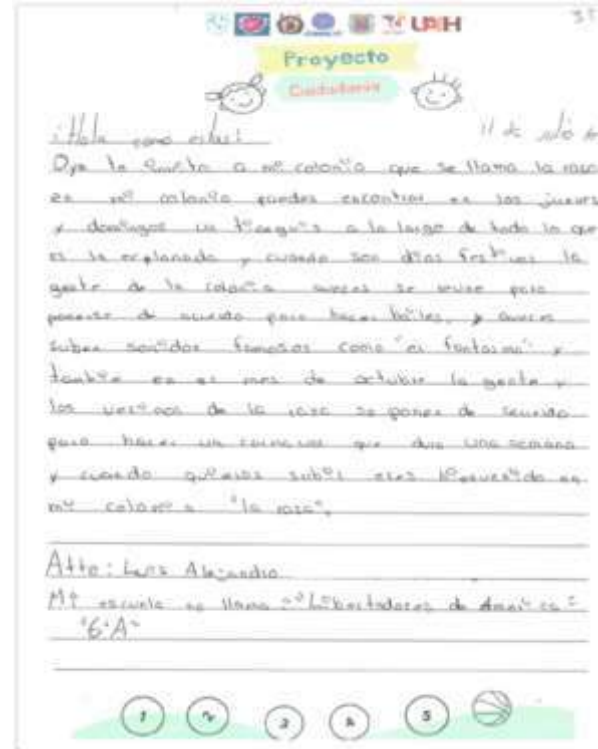 UPEH
Proyecto
Ciudadanía
¡Hola como estas!
11 de
Oye te invito a mi colonia que se llama la raza
en mi colonia puedes encontrar en los jueves
y domingos un tianguis a lo largo de toda lo que
es la explanada y cuando son días festivos la
gente de la colonia aveces se reune para
ponerse de acuerdo para hacer bailes, y aveces
suben sonidos famosos como "el fantasma" y
también en el mes de octubre la gente y
los vecinos de la raza se ponen de acuerdo
para hacer un carnaval que dura una semana
y cuando quieras subir eres bienvenido en
mi colonia "la raza".
Atte: Luis Alejandro
Mi escuela se llama: "Libertadores de America"
"6°A"
1 2 3 4 5